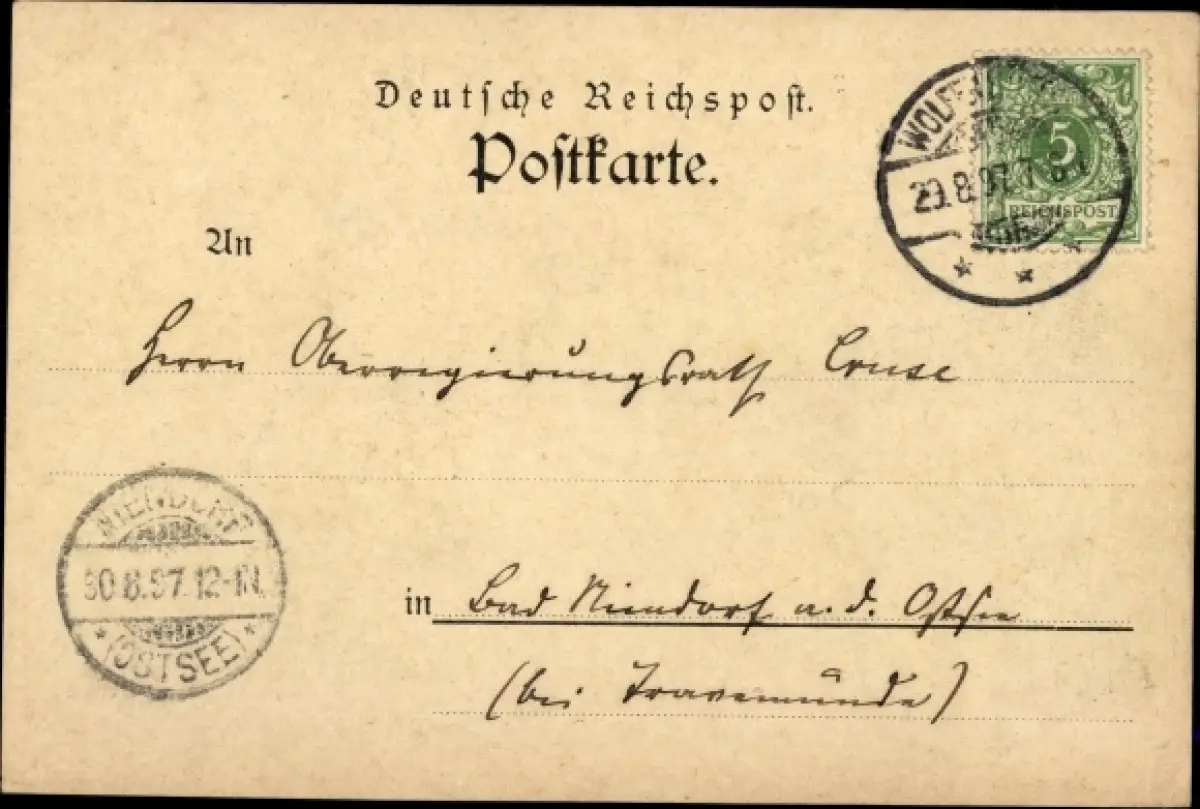 Deutsche Reichspost.
Postkarte.
5
REICHSPOST
29.8.97.7-8
An
Herrn Oberregierungsrath Cruse
NIENDORF
30.8.97.12-1N.
(OSTSEE)
in Bad Niendorf a. d. Ostsee
(bei Travemünde)